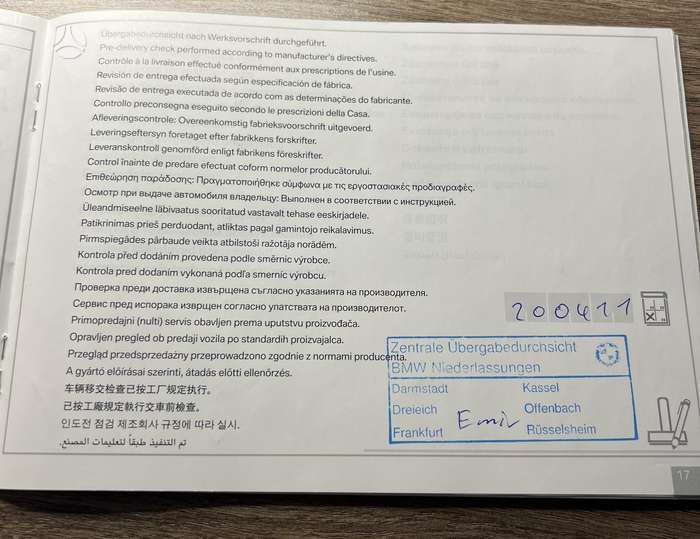 Übergabedurchsicht nach Werksvorschrift durchgeführt.
Pre-delivery check performed according to manufacturer's directives.
Contrôle à la livraison effectué conformément aux prescriptions de l'usine.
Revisión de entrega efectuada según especificación de fábrica.
Revisão de entrega executada de acordo com as determinações do fabricante.
Controllo preconsegna eseguito secondo le prescrizioni della Casa.
Afleveringscontrole: Overeenkomstig fabrieksvoorschrift uitgevoerd.
Leveringseftersyn foretaget efter fabrikkens forskrifter.
Leveranskontroll genomförd enligt fabrikens föreskrifter.
Control înainte de predare efectuat coform normelor producătorului.
Επιθεώρηση παράδοσης: Πραγματοποιήθηκε σύμφωνα με τις εργοστασιακές προδιαγραφές.
Осмотр при выдаче автомобиля владельцу: Выполнен в соответствии с инструкцией.
Üleandmiseelne läbivaatus sooritatud vastavalt tehase eeskirjadele.
Patikrinimas prieš perduodant, atliktas pagal gamintojo reikalavimus.
Pirmspiegādes pārbaude veikta atbilstoši ražotāja norādēm.
Kontrola před dodáním provedena podle směrnic výrobce.
Kontrola pred dodaním vykonaná podľa smerníc výrobcu.
Проверка преди доставка извършена съгласно указанията на производителя.
Сервис пред испорака изврщен согласно упатствата на производителот.
Primopredajni (nulti) servis obavljen prema uputstvu proizvođača.
Opravljen pregled ob predaji vozila po standardih proizvajalca.
Przegląd przedsprzedażny przeprowadzono zgodnie z normami producenta.
A gyártó előírásai szerinti, átadás előtti ellenőrzés.
车辆移交检查已按工厂规定执行。
已按工廠規定執行交車前檢查。
인도전 점검 제조회사 규정에 따라 실시.
تم التنفيذ طبقاً لتعليمات المصنع.
200411
Zentrale Übergabedurchsicht
BMW Niederlassungen
Darmstadt Kassel
Dreieich Offenbach
Frankfurt Rüsselsheim
17